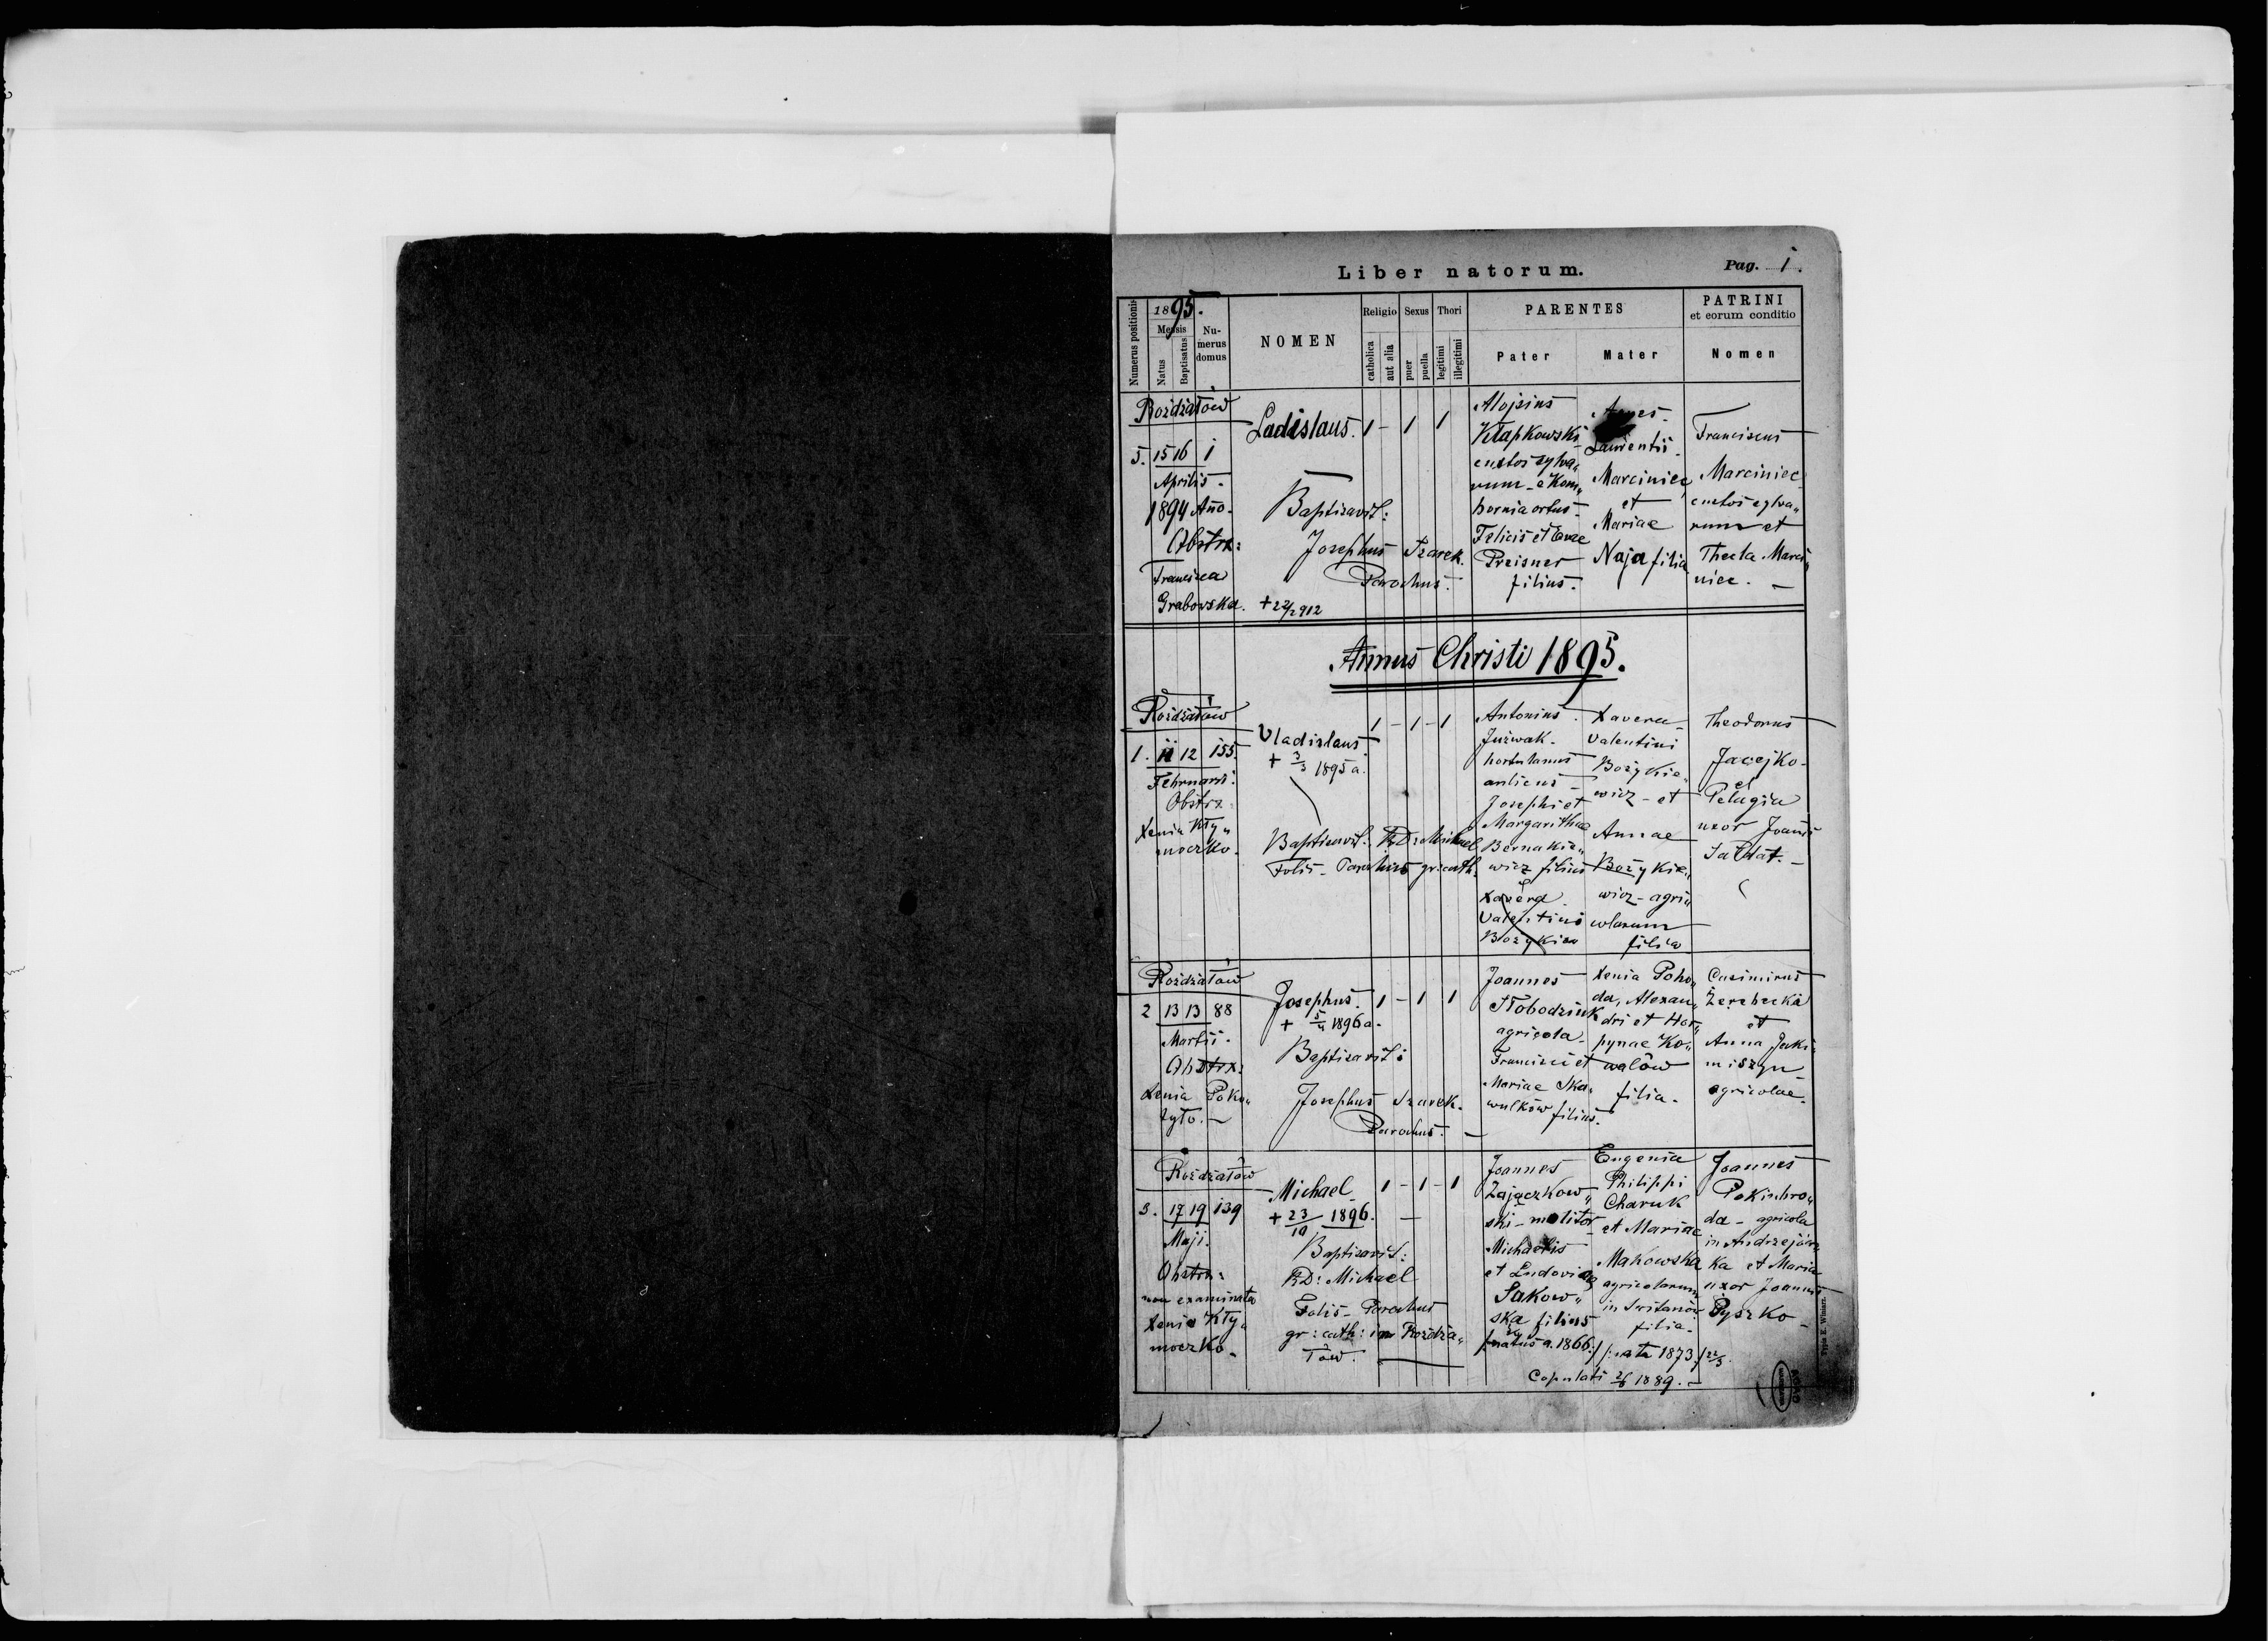 Liber natorum.
Pag. 1.
Numerus positionis
1895.
Mensis
Natus
Baptisatus
Numerus domus
NOMEN
Religio
catholica
aut alia
Sexus
puer
puella
Thori
legitimi
illegitimi
PARENTES
Pater
Mater
PATRINI
et eorum conditio
Nomen
Rożdżałów
5. 15 16 1
Aprilis.
1894 Ano.
Obstx:
Francisca
Grabowska.
Ladislaus. 1 - 1 1
Baptisavit:
Josephus Szarek.
Parochus.
+ 22/2 912
Alojsius
Kłapkowski
custos sylva„
rum - e Kom„
hornia ortus.
Felicis et Evae
Preisner
filius.
Agnes.
Laurentii.
Marciniec
et
Mariae
Naja filia
Franciscus
Marciniec
custos sylva„
rum et
Thecla Marci„
niec. -
Annus Christi 1895.
Rożdżałów
1. 11 12 155.
Februarii.
Obstx.
Xenia Kły„
moczko.
Vladislaus 1 - 1 - 1
+ 3/3 1895 a.
Baptisavit: RD: Michael
Folis - Parochus gr: cath.
Antonius.
Juzwak.
hortulanus
aulicus -
Josephi et
Margarithae
Bernakie„
wicz filius
Xavera
Valentini
Bożykiew
Xavera
Valentini
Bożykie„
wicz - et
Annae
Bożykie„
wicz - agri„
colarum
filia
Theodorus
Jacejko.
et
Pelagia
uxor Joannis
Sałdat. -
Rożdżałów
2 13 13 88
Martii.
Obstx:
Xenia Poko„
tyło. -
Josephus. 1 - 1 1
+ 5/4 1896 a.
Baptisavit:
Josephus Szarek.
Parochus. -
Joannes
Słobodziuk
agricola.
Francisci et
Mariae Ska„
wulków filius.
Xenia Poho„
da, Alexan„
dri et Hor„
pynae Ko„
walów
filia.
Casimirus
Żerebecki
et
Anna Jaki„
miszyn
agricolae.
Rożdżałów
3. 17 19 139
Maji.
Obstx:
non examinata
Xenia Kły„
moczko.
Michael 1 - 1 - 1
+ 23/10 1896.
Baptisavit:
RD: Michael
Folis - Parochus
gr: cath: in Rożdża„
łów.
Joannes
Zajączkow„
ski - molitor
Michaelis
et Ludovicae
Sakow„
ska filius
natus a. 1866.
Eugenia
Philippi
Charuk
et Mariae
Makowska
agricolarum
in Switarzów
filia.
nata 1873 22/3.
Copulati 2/6 1889. -
Joannes
Pokinbro„
da - agricola
in Andrzejów„
ka et Maria
uxor Joannis
Pyszko -
Typis E. Winiarz.